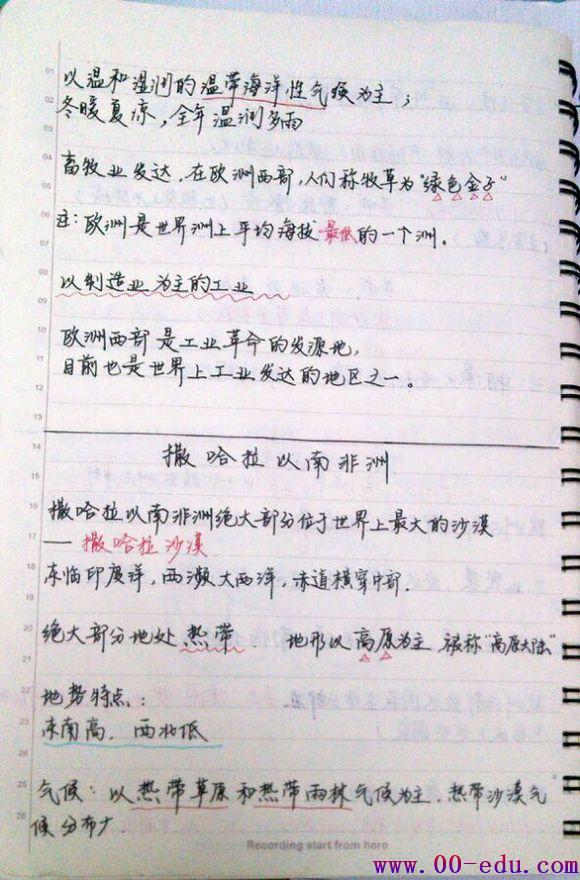 以温和湿润的温带海洋性气候为主，
冬暖夏凉，全年温润多雨
畜牧业发达．在欧洲西部，人们称牧草为"绿色金子"
注：欧洲是世界洲上平均海拔最低的一个洲．
以制造业为主的工业
欧洲西部是工业革命的发源地，
目前也是世界上工业发达的地区之一．
撒哈拉以南非洲
撒哈拉以南非洲绝大部分位于世界上最大的沙漠
——撒哈拉沙漠
东临印度洋．西濒大西洋，赤道横穿中部．
绝大部分地处热带 地形以高原为主 被称"高原大陆"
地势特点：
东南高．西北低
气候：以热带草原和热带雨林气候为主．热带沙漠气
候分布广
Recording start from here
www.00-edu.com
01
02
03
04
05
06
07
08
09
10
11
12
13
14
15
16
17
18
19
20
21
22
23
24
25
26